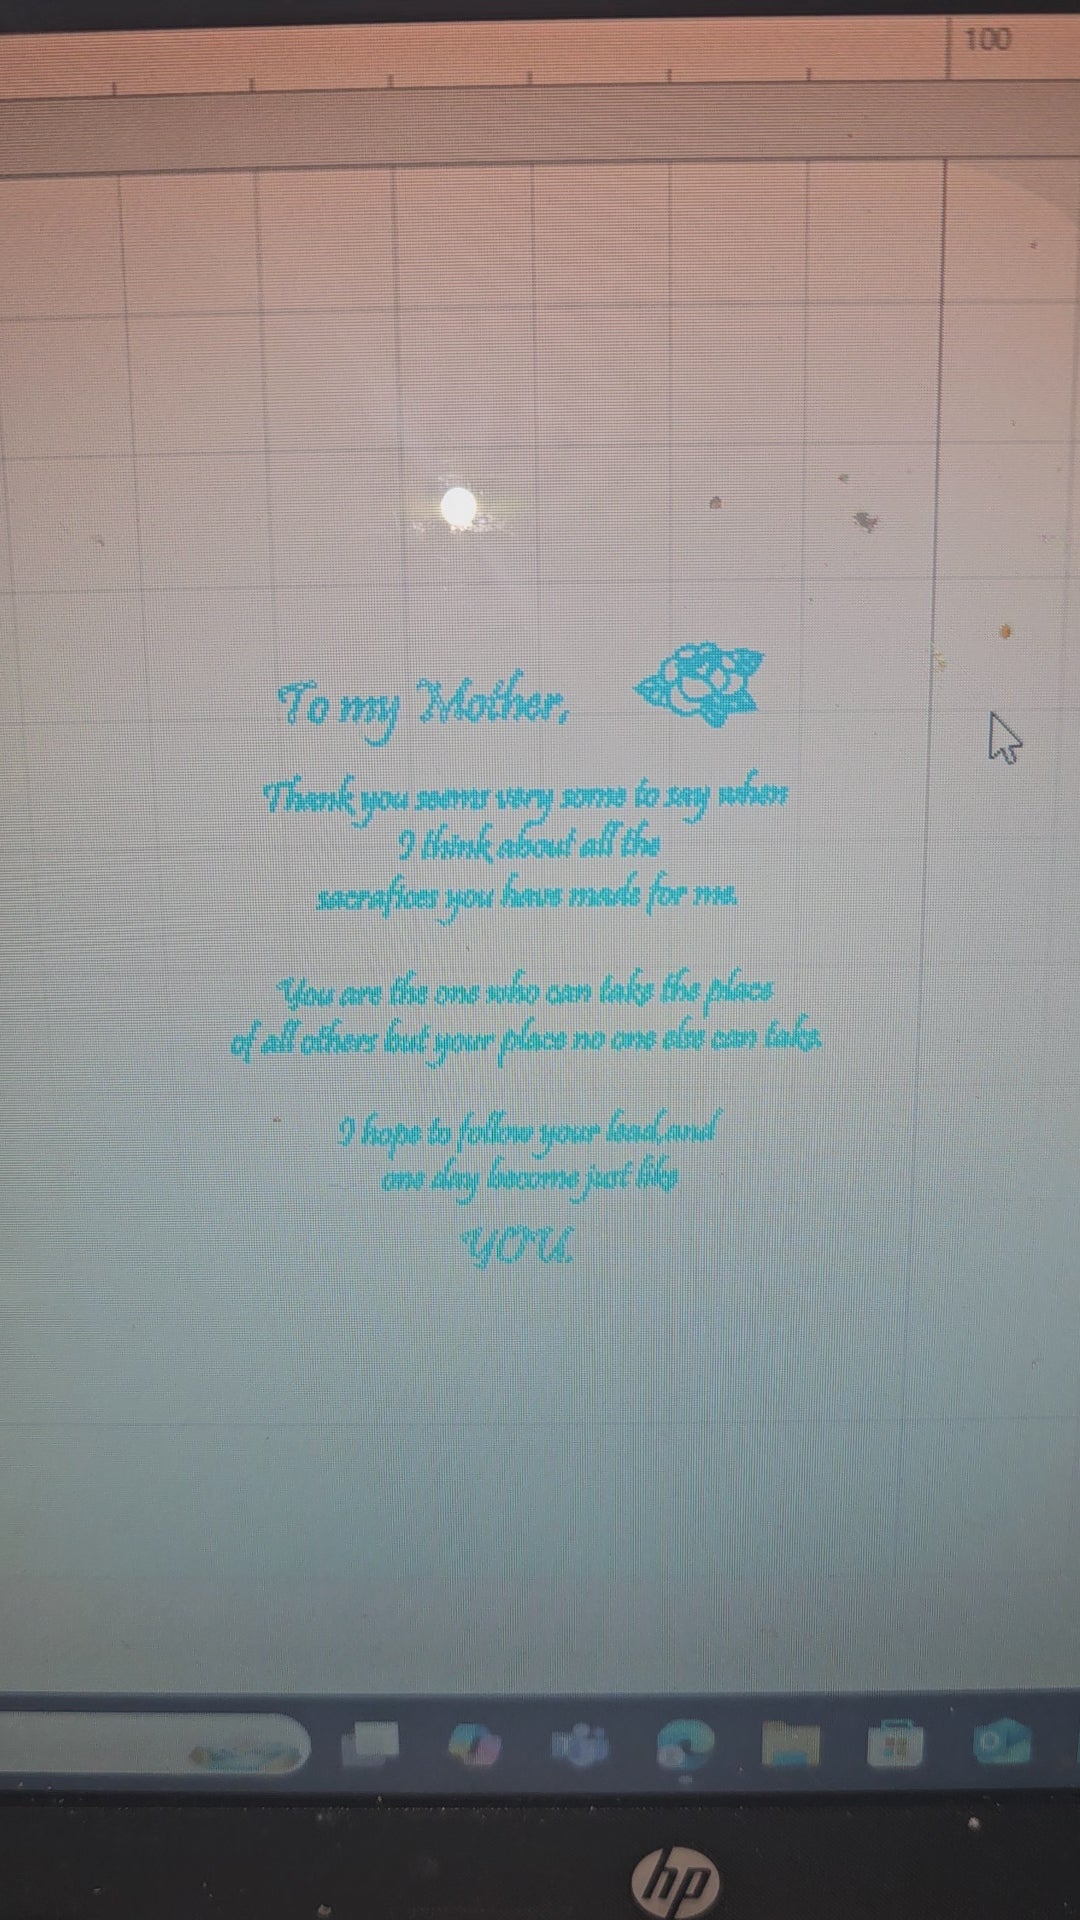 100
To my Mother,
Thank you seems very some to say when
I think about all the
sacrafices you have made for me.
You are the one who can take the place
of all others but your place no one else can take.
I hope to follow your lead,and
one day become just like
YOU.
hp